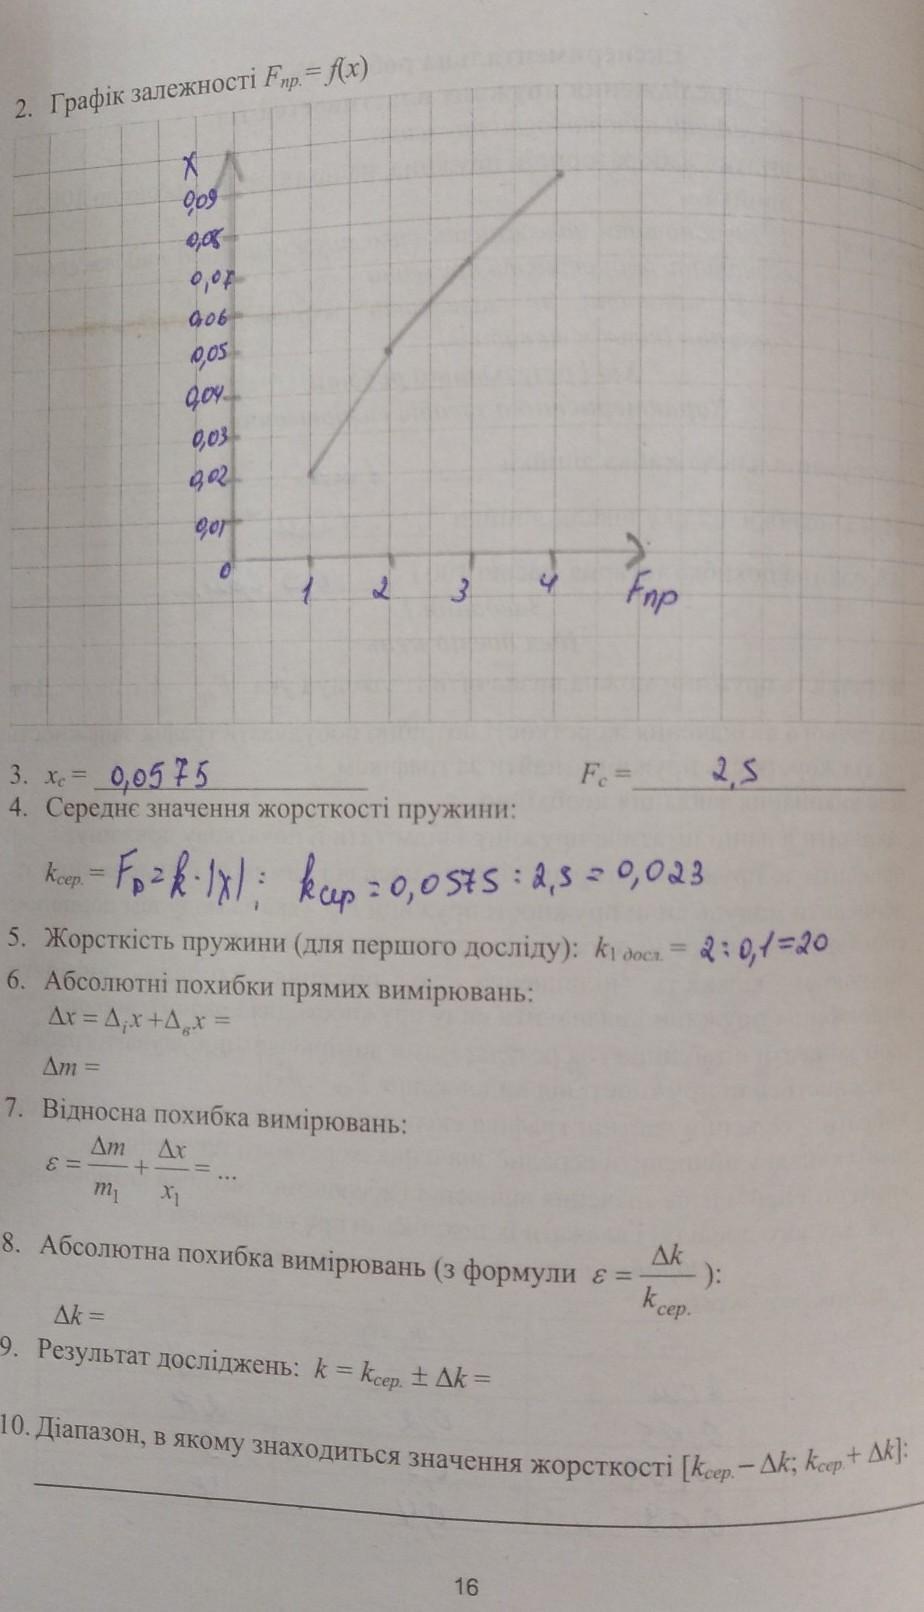 2. Графік залежності Fпр. = f(x)
X
0,09
0,08
0,07
0,06
0,05
0,04
0,03
0,02
0,01
0
1 2 3 4 Fпр
3. xc = 0,0575 Fc = 2,5
4. Середнє значення жорсткості пружини:
kсер. = Fp = k · |x| ; kсер = 0,0575 : 2,5 = 0,023
5. Жорсткість пружини (для першого досліду): k1 досл. = 2 : 0,1 = 20
6. Абсолютні похибки прямих вимірювань:
Δx = Δix + Δвx =
Δm =
7. Відносна похибка вимірювань:
ε = Δm/m1 + Δx/x1 = ...
8. Абсолютна похибка вимірювань (з формули ε = Δk/kсер. ):
Δk =
9. Результат досліджень: k = kсер. ± Δk =
10. Діапазон, в якому знаходиться значення жорсткості [kсер. – Δk; kсер. + Δk]:
16